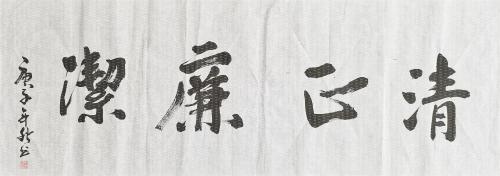 清正廉潔
庚子年秋書